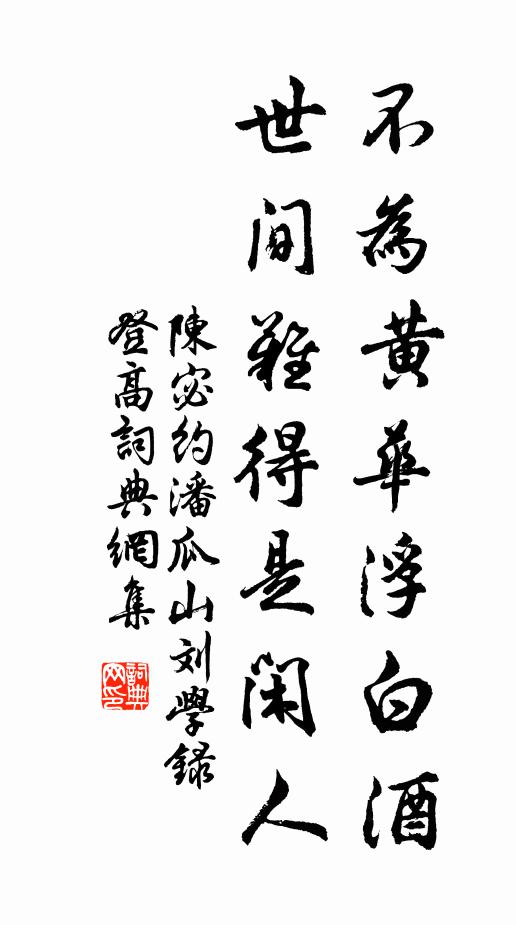 不為黃華浮白酒
世間難得是閑人
陳宓約潘瓜山刘學録
登高詞典網集
詞典网印